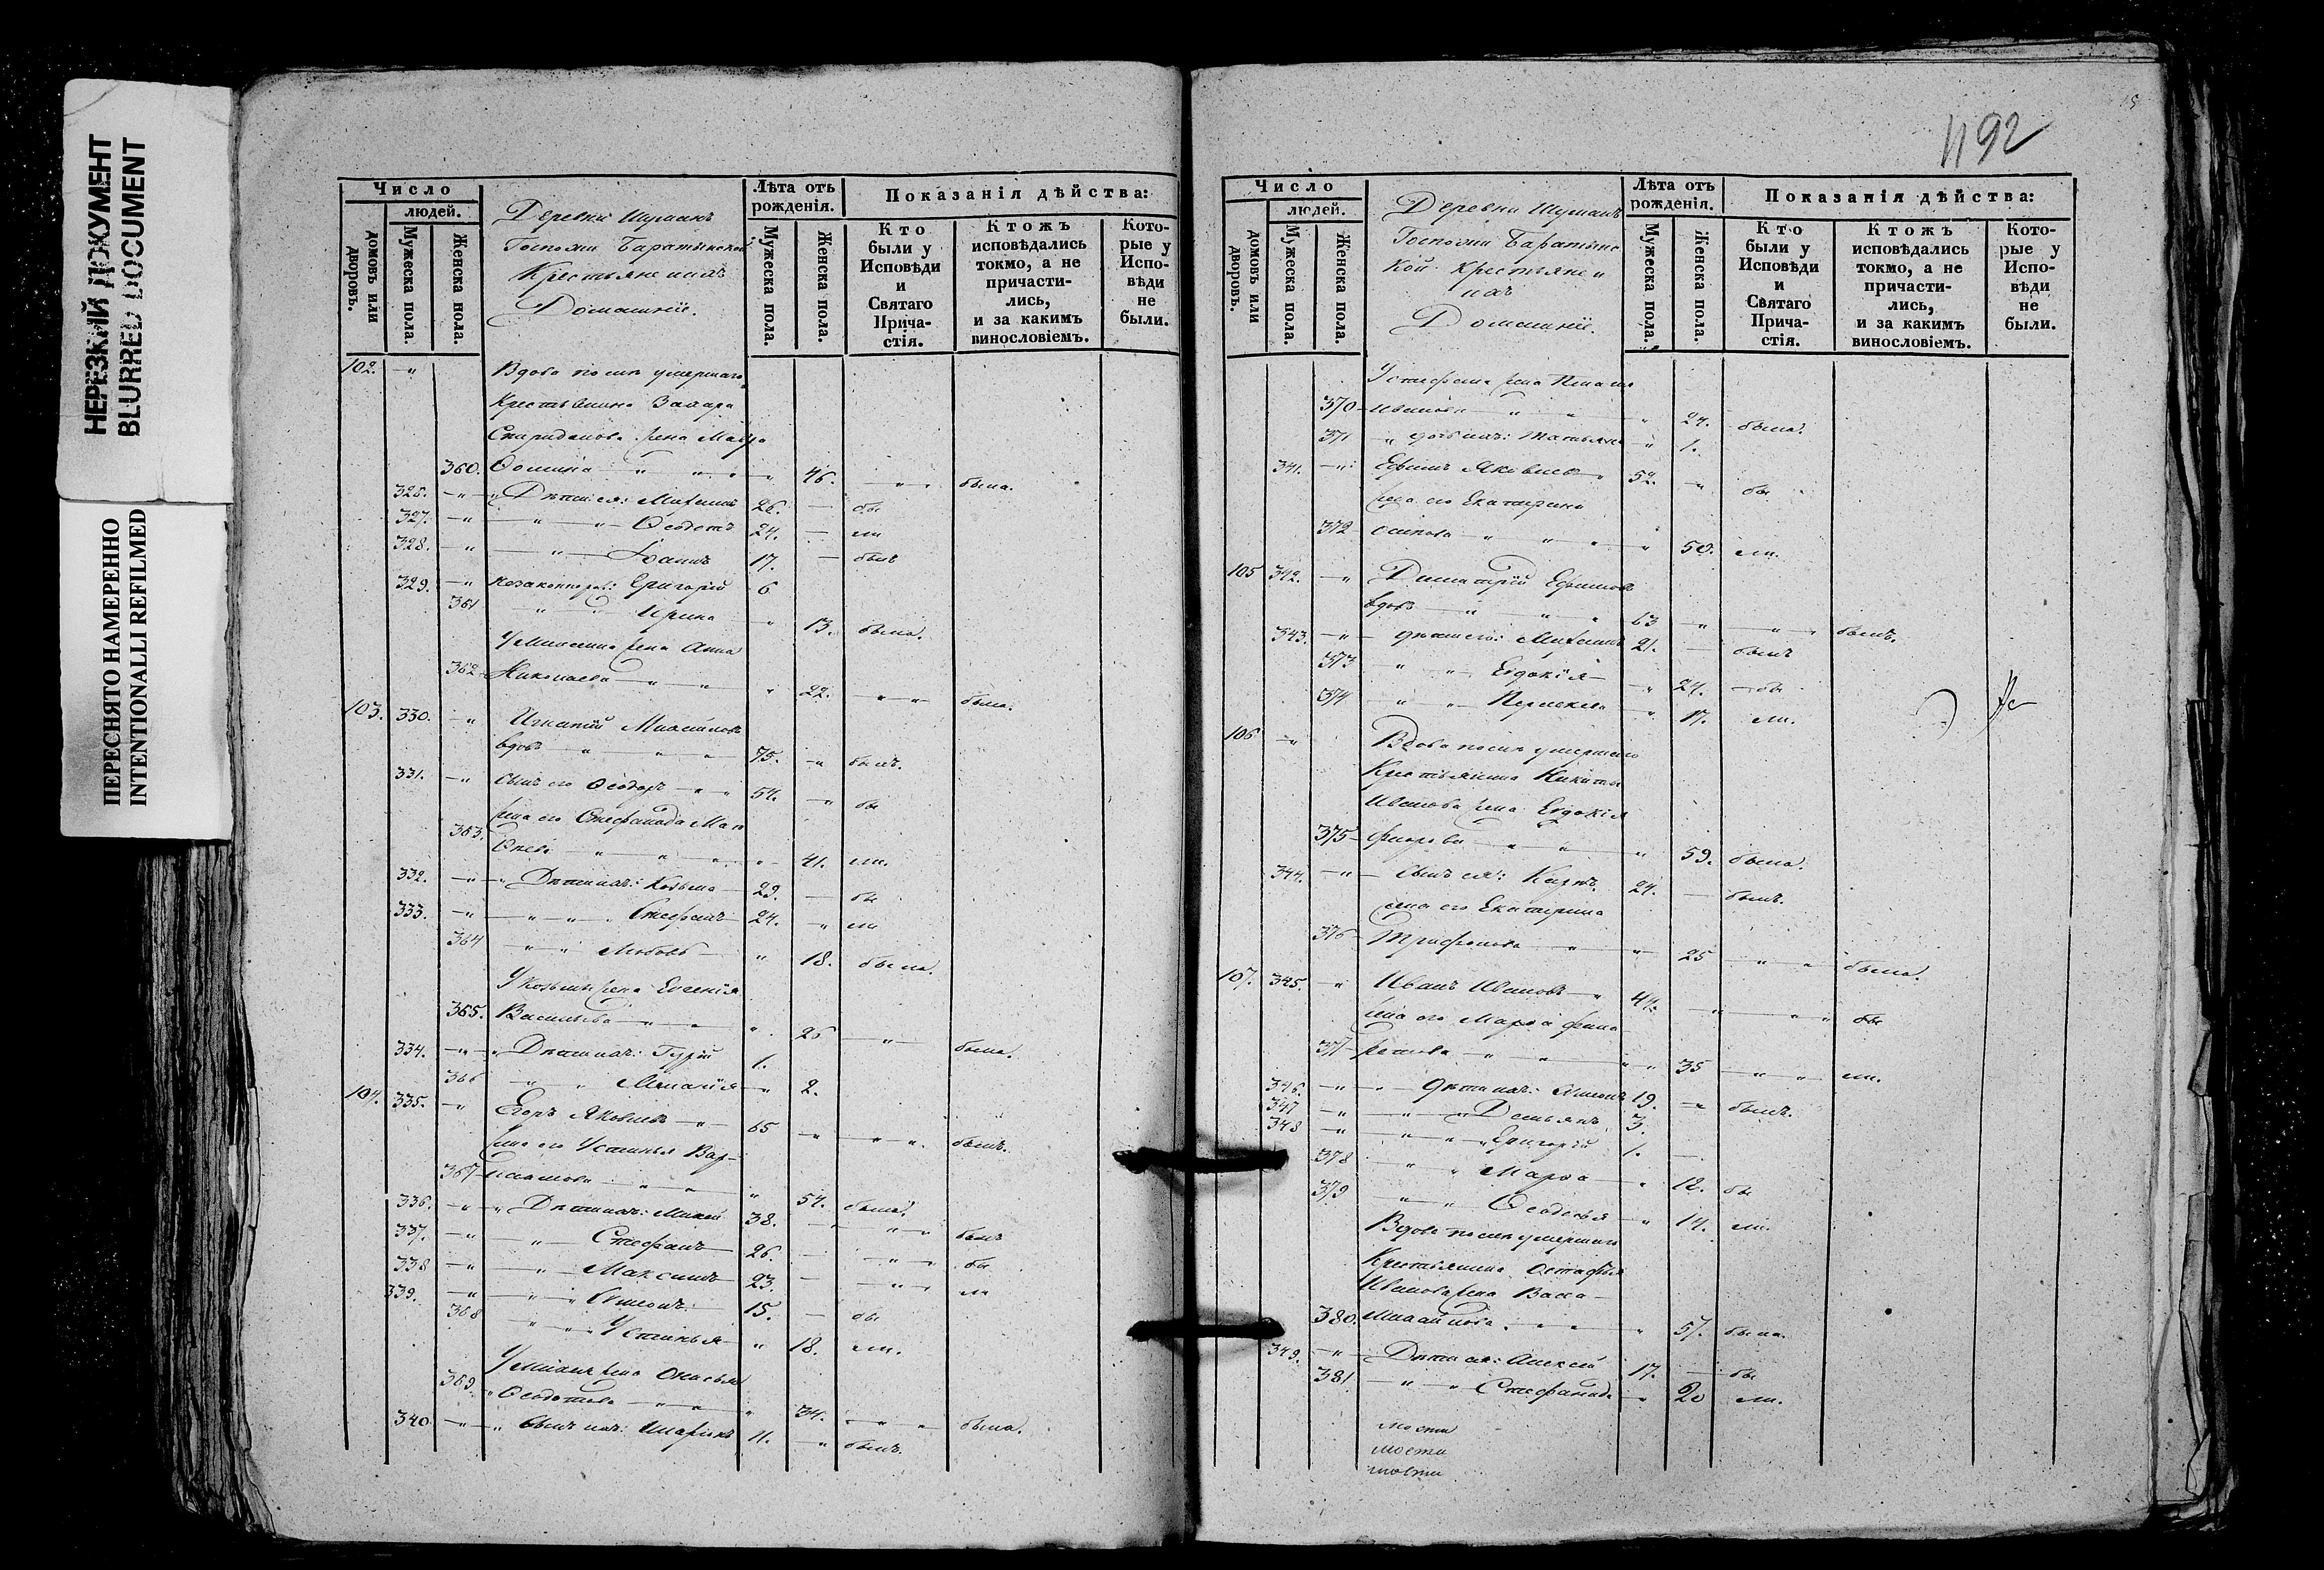 НЕРЕЗКИЙ ДОКУМЕНТ
BLURRED DOCUMENT
ПЕРЕСНЯТО НАМЕРЕННО
INTENTIONALLI REFILMED
Число
домовъ или дворовъ.
людей.
Мужеска пола.
Женска пола.
Деревни Шуманъ
Госпожи Баратынской
Крестьяне ихъ
Домашніе.
Лѣта отъ рожденія.
Мужеска пола.
Женска пола.
Показанія дѣйства:
Кто были у Исповѣди и Святаго Причастія.
Ктожъ исповѣдались токмо, а не причастились, и за какимъ винословіемъ.
Которые у Исповѣди не были.
102. Вдова после умершаго
Крестьянина Захара
Спиридонова жена Мавра
360. Фомина 46. была.
326. Дѣти ея: Михаилъ 26. бы
327. Ѳеодотъ 24. ли
328. Іоаннъ 17. былъ
329. незаконнор: Григорій 6
361 Ирина 13. была.
жена Анна
362. Николаева 22. была.
103. 330. Игнатій
вдовъ 75. былъ.
331. Сынъ его Ѳеодоръ 54. бы
жена его Стефанида
363. 41. ли.
332. Дѣти ихъ: Козьма 29. бы
333. Стефанъ 24. ли
364 Любовь 18. была.
У Козьмы жена Евгенія
365. Васильева 26 была.
334. Дѣти ихъ: Гурій 1.
366 Меланія 2.
104. 335. Егоръ Яковлевъ 65 былъ.
жена его Устинья Вар-
367 лаамова 54. была.
336. Дѣти ихъ: Михей 38. былъ
337. Стефанъ 26 бы
338 Максимъ 23. ли
339. Симеонъ 15. бы
368 Устинья 18. ли.
У Михея жена
369. Ѳеодотова 34. была.
340 Сынъ ихъ: Иларіонъ 11. былъ.
1192
Число
домовъ или дворовъ.
людей.
Мужеска пола.
Женска пола.
Деревни Шуманъ
Госпожи Баратынс
кой Крестьяне и
ихъ
Домашніе.
Лѣта отъ рожденія.
Мужеска пола.
Женска пола.
Показанія дѣйства:
Кто были у Исповѣди и Святаго Причастія.
Ктожъ исповѣдались токмо, а не причастились, и за какимъ винословіемъ.
Которые у Исповѣди не были.
У Стефана жена
370 Иванова 24. была.
371 дочь ихъ: Татьяна 1.
341. Ефимъ Яковлевъ 52. бы
жена его Екатерина
372 Осипова 50. ли.
105 342. Димитрій Ефимовъ
вдовъ 63 былъ.
343. дѣти его: Михаилъ 21. былъ
373 Евдокія 24. бы
374 17. ли.
106 Вдова после умершаго
Крестьянина Никиты
Иванова жена Евдокія
375 59. была.
344. Сынъ ея: Карпъ 24. былъ.
жена его Екатерина
376 Трифонова 25 была.
107. 345. Иванъ Ивановъ 44. бы
жена его Марѳа
377 35 ли.
346. дѣти ихъ: 19. былъ.
347 Демьянъ 3.
348 Григорій 1.
378 Марѳа 12. бы
379 Ѳеодосья 14. ли.
Вдова после умершаго
Крестьянина Остафья
Иванова жена Васса
380. 57. была.
349. Дѣти ея: Алексѣй 17. бы
381 Стефанида 20 ли.